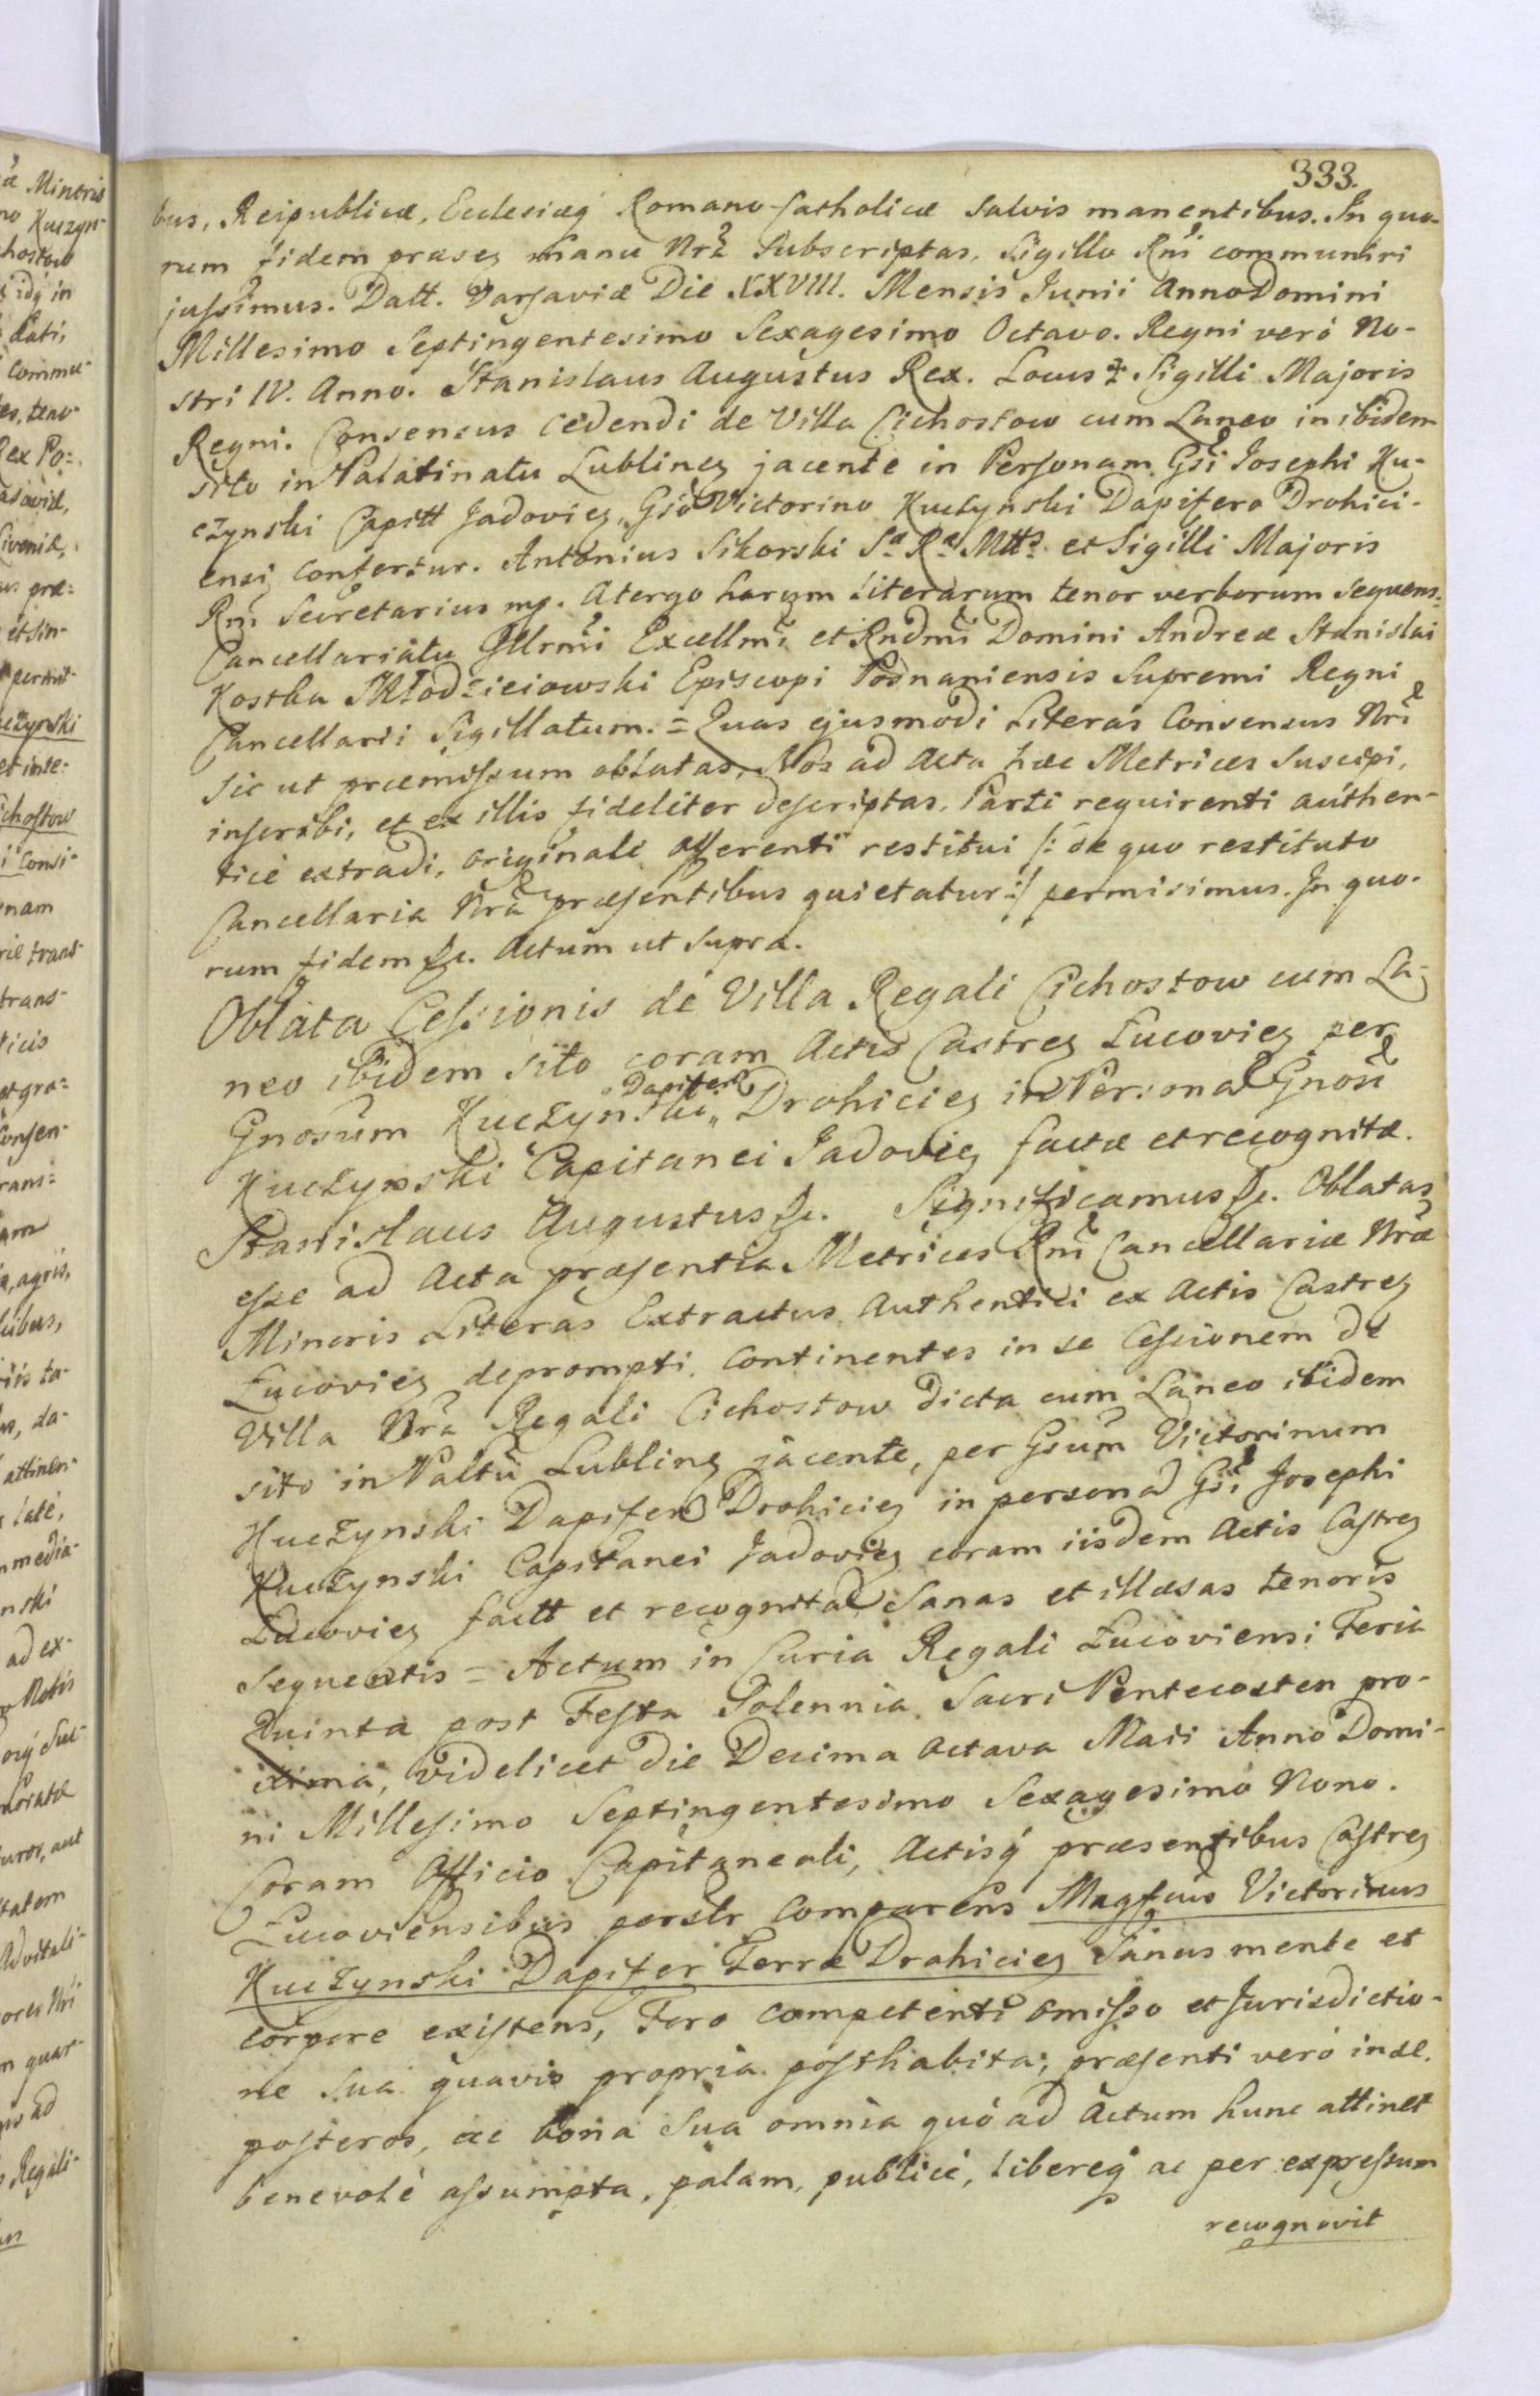 333.
bus, Reipublicæ, Ecclesiæq Romano-Catholicæ salvis manentibus. In quo-
rum fidem præsez manu Nrã Subscriptas, Sigillo Rnĩ communiri
jussimus. Datt. Varsaviæ Die XXVIII. Mensis Junii Anno Domini
Millesimo Septingentesimo Sexagesimo Octavo. Regni veró No-
stri IV. Anno. Stanislaus Augustus Rex. Locus Sigilli Majoris
Regni. Consensus cedendi de Villa Cichostow cum Laneo inibidem
sito in Palatinatu Lublinez jacente in Personam Gsĩ Josephi Ku-
czynski Capitt Jadoviez, Gsõ Victorino Kuczynski Dapifero Drohici-
ensi confertur. Antonius Sikorski Sæ Ræ Mttis et Sigilli Majoris
Rnĩ Secretarius mp. Atergo harum Literarum tenor verborum sequens=
Cancellariatu Jllrmĩ Excellmĩ et Rndmĩ Domini Andreæ Stanislai
Kostka Młodzieiowski Episcopi Posnaniensis Supremi Regni
Cancellarii Sigillatum. = Quas ejusmodi Literas Consensus Nrĩ
sic ut præmissum oblatas, Nos ad Acta hæc Metrices Suscipi,
inscribi, et ex illis fideliter descriptas, Parti requirenti authen-
ticé extradi, originale offerenti restitui /: de quo restituto
Cancellaria Nrã præsentibus quietatur :/ permisimus. In quo-
rum fidem &c. Actum ut supra.
Oblata Cessionis de Villa Regali Cichostow cum La-
neo ibidem sito coram Actis Castrez Lucoviez per
Dapiferũ
Gnosum Kuczynski „ Drohiciez in Personã Gnosĩ
Kuczynski Capitanei Jadoviez factæ et recognitæ.
Stanislaus Augustus &c. Significamus &c. Oblatas
esse ad Acta præsentia Metrices Rnĩ Cancellariæ Nræ
Minoris Literas Extractus Authentici ex Actis Castrez
Lucoviez deprompti, continentes in se Cessionem de
Villa Nrã Regali Cichostow dicta cum Laneo ibidem
sito in Paltũ Lublinez jacente, per Gsum Victorinum
Kuczynski Dapiferũ Drohiciez in personã Gsĩ Josephi
Kuczynski Capitanei Jadoviez coram iisdem Actis Castrez
Lucoviez factt et recognitã, Sanas et illæsas tenoris
sequentis = Actum in Curia Regali Lucoviensi Feria
Quinta post Festa Solennia Sacri Pentecosten pro-
xima, videlicet Die Decima Octava Maii Anno Domi-
ni Millesimo Septingentesimo Sexagesimo Nono.
Coram Officio Capitaneali, Actisq́ præsentibus Castrez
Lucoviensibus personlr Comparens Magfcus Victorinus
Kuczynski Dapifer Terræ Drohiciez Sanus mente et
corpore existens, Foro competenti omisso et Jurisdictio-
ne sua quavis propria posthabita, præsenti veró in se,
posteros, ac bona sua omnia quó ad Actum hunc attinet
benevolé assumpta, palam, publicé, libereq́ ac per expressum
recognovit